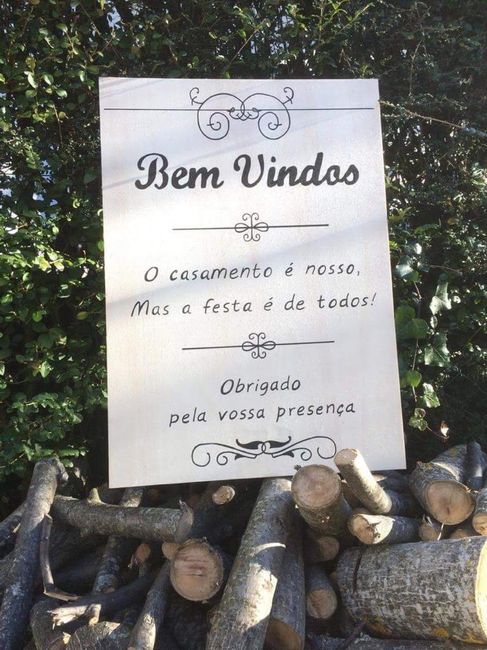 Bem Vindos
O casamento é nosso,
Mas a festa é de todos!
Obrigado
pela vossa presença